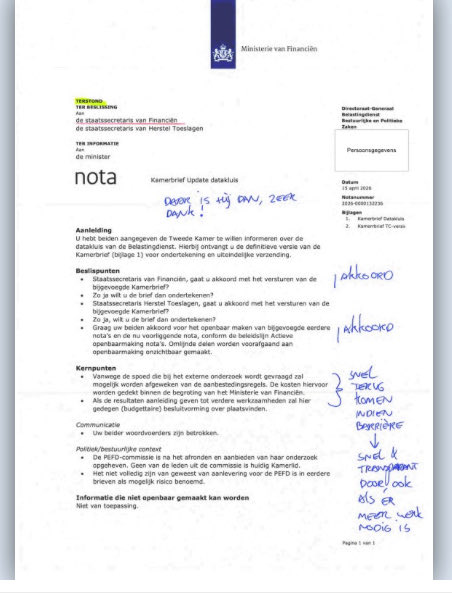 Ministerie van Financiën
TERSTOND
TER BESLISSING
Aan
de staatssecretaris van Financiën
de staatssecretaris van Herstel Toeslagen
TER INFORMATIE
Aan
de minister
Directoraat-Generaal
Belastingdienst
Bestuurlijke en Politieke
Zaken
Persoonsgegevens
nota
Kamerbrief Update datakluis
Datum
15 april 2026
Notanummer
2026-0000132236
Bijlagen
1. Kamerbrief Datakluis
2. Kamerbrief TC-versie
DAAR IS HIJ DAN, ZEER
DANK!
Aanleiding
U hebt beiden aangegeven de Tweede Kamer te willen informeren over de
datakluis van de Belastingdienst. Hierbij ontvangt u de definitieve versie van de
Kamerbrief (bijlage 1) voor ondertekening en uiteindelijke verzending.
Beslispunten
• Staatssecretaris van Financiën, gaat u akkoord met het versturen van de
bijgevoegde Kamerbrief?
• Zo ja, wilt u de brief dan ondertekenen?
• Staatssecretaris Herstel Toeslagen, gaat u akkoord met het versturen van de
bijgevoegde Kamerbrief?
• Zo ja, wilt u de brief dan ondertekenen?
• Graag uw beiden akkoord voor het openbaar maken van bijgevoegde eerdere
nota's en de nu voorliggende nota, conform de beleidslijn Actieve
openbaarmaking nota's. Omlijnde delen worden voorafgaand aan
openbaarmaking onzichtbaar gemaakt.
AKKOORD
AKKOORD
Kernpunten
• Vanwege de spoed die bij het externe onderzoek wordt gevraagd zal
mogelijk worden afgeweken van de aanbestedingsregels. De kosten hiervoor
worden gedekt binnen de begroting van het Ministerie van Financiën.
• Als de resultaten aanleiding geven tot verdere werkzaamheden zal hier
gedegen (budgettaire) besluitvorming over plaatsvinden.
Communicatie
• Uw beider woordvoerders zijn betrokken.
Politiek/bestuurlijke context
• De PEFD-commissie is na het afronden en aanbieden van haar onderzoek
opgeheven. Geen van de leden uit de commissie is huidig Kamerlid.
• Het niet volledig zijn van geweest van aanlevering voor de PEFD is in eerdere
brieven als mogelijk risico benoemd.
Informatie die niet openbaar gemaakt kan worden
Niet van toepassing.
SNEL
TERUG
KOMEN
INDIEN
BARRIÈRE
SNEL &
TRANSPARANT
DOOR OOK
ALS ER
MEER WERK
NODIG IS
Pagina 1 van 1